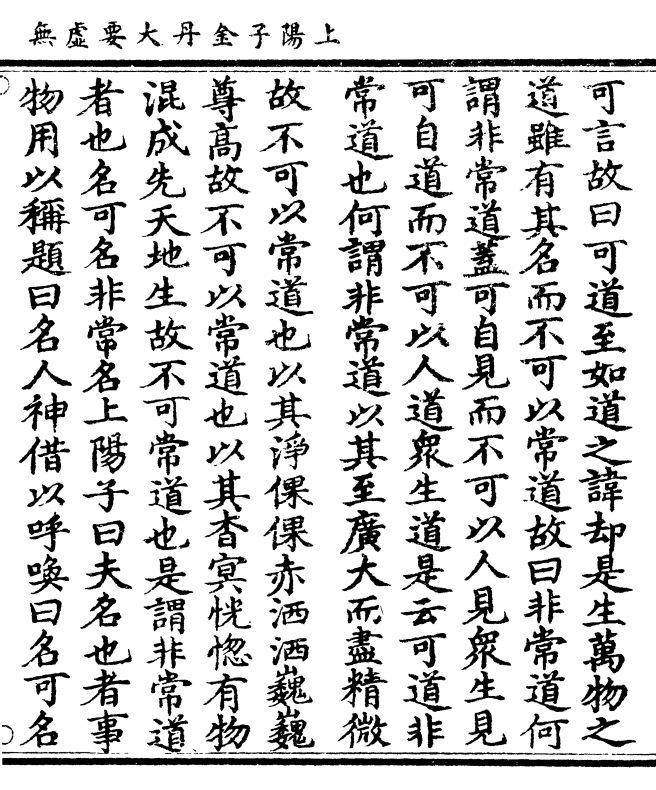 上陽子金丹大要虛無
可言故曰可道至如道之諱却是生萬物之
道雖有其名而不可以常道故曰非常道何
謂非常道蓋可自見而不可以人見衆生見
可自道而不可以人道衆生道是云可道非
常道也何謂非常道以其至廣大而盡精微
故不可以常道也以其淨倮倮赤洒洒巍巍
尊高故不可以常道也以其杳冥恍惚有物
混成先天地生故不可常道也是謂非常道
者也名可名非常名上陽子曰夫名也者事
物用以稱題曰名人神借以呼喚曰名可名